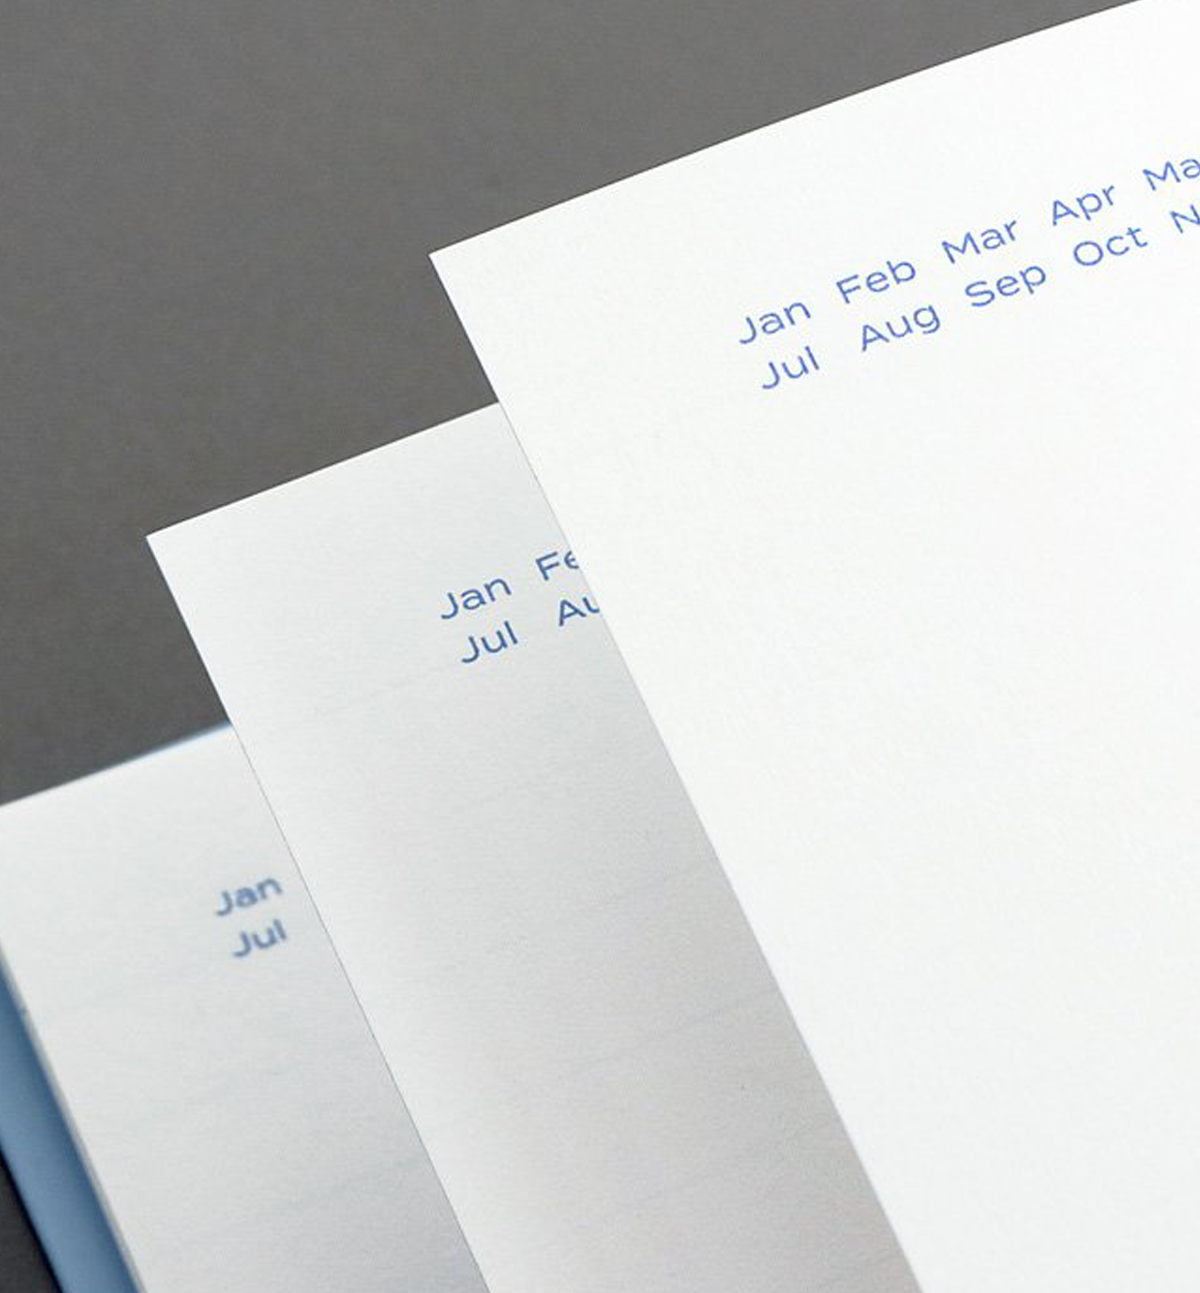 Jan Feb Mar Apr Ma
Jul Aug Sep Oct N
Jan Fe
Jul Au
Jan
Jul